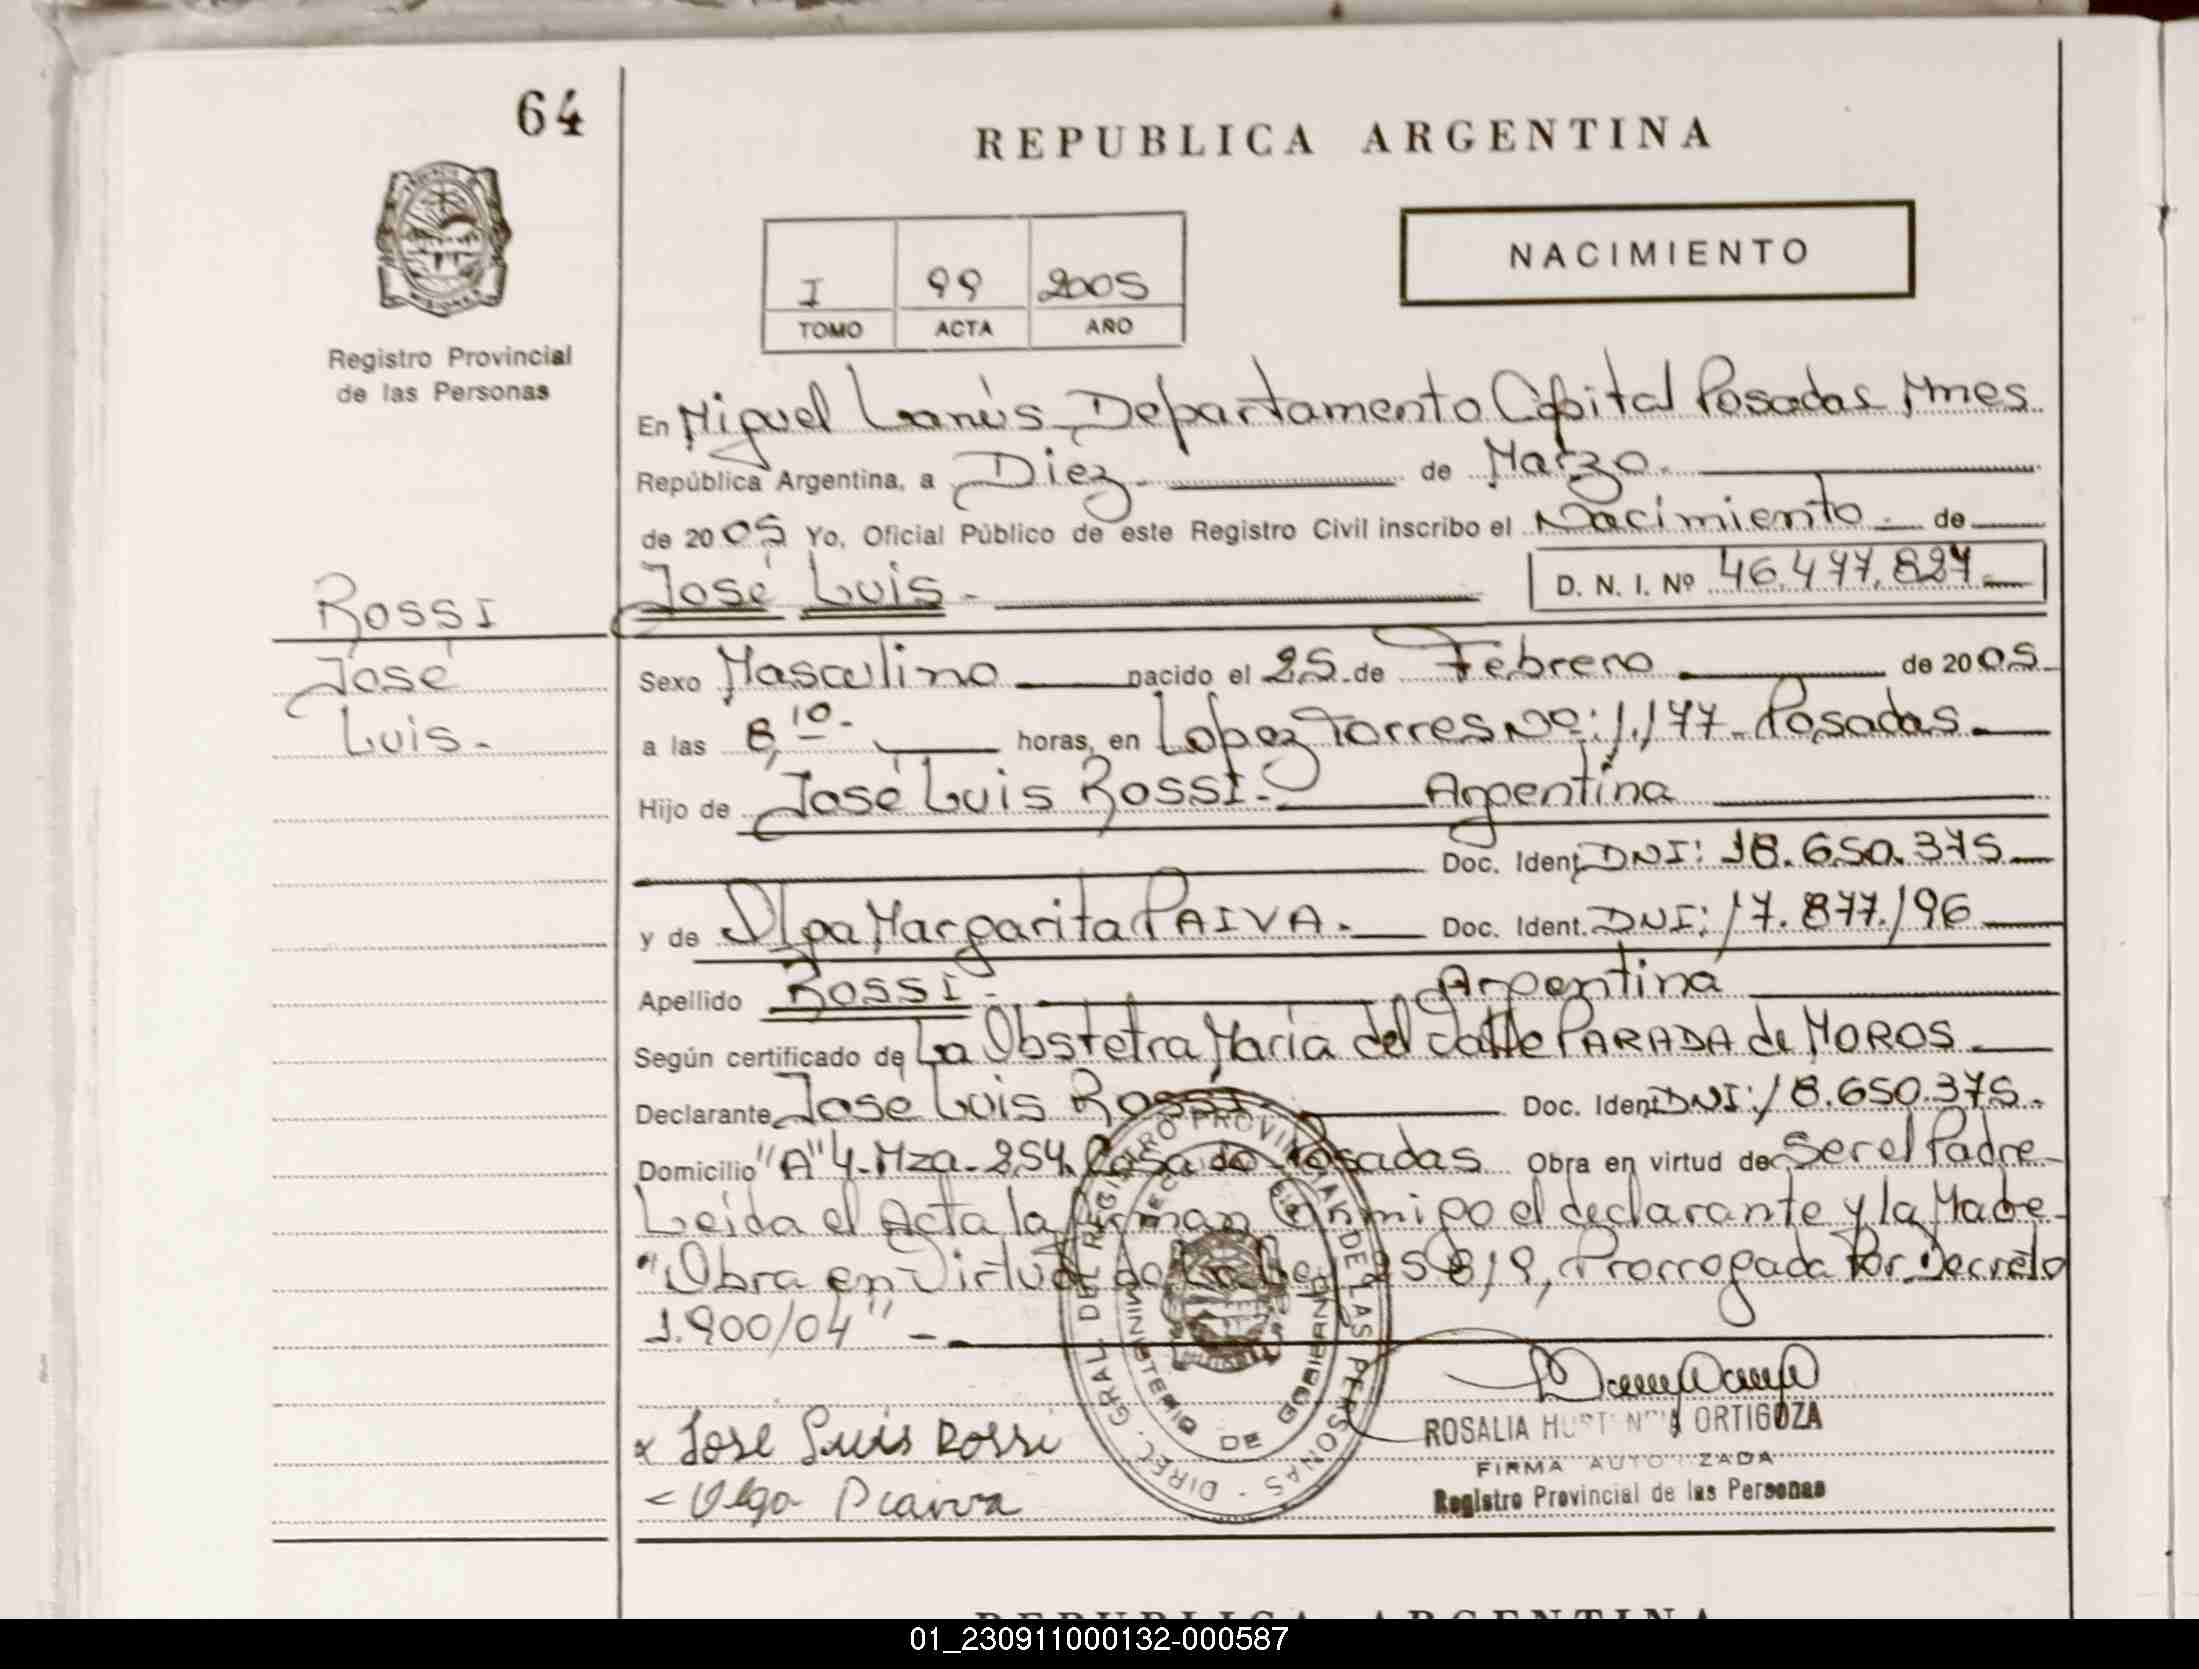 64
REPUBLICA ARGENTINA
NACIMIENTO
I 99 2005
TOMO ACTA AÑO
Registro Provincial
de las Personas
En Miguel Lanús Departamento Capital Posadas Mnes
República Argentina, a Diez de Marzo.
de 2005 Yo, Oficial Público de este Registro Civil inscribo el Nacimiento de
José Luis D. N. I. Nº 46.477.827
Rossi
José
Luis
Sexo Masculino nacido el 25 de Febrero de 2005
a las 8,10 horas, en Lopez Torres Nº: 1.177 Posadas
Hijo de José Luis Rossi Argentina
Doc. Ident. DNI: 18.650.375
y de Olga Margarita PAIVA. Doc. Ident. DNI: 17.877.196
Apellido Rossi Argentina
Según certificado de La Obstetra María del Valle PARADA de MOROS
Declarante José Luis Rossi Doc. Ident. DNI: 18.650.375.
Domicilio "A" 4-Mza-254. Casa Posadas Obra en virtud de Ser el Padre
Leída el Acta la firman Conmigo el declarante y la Madre
"Obra en Virtud de la Ley 25819, Prorrogada Por Decreto
1.900/04"
DIREC. GRAL. DEL REGISTRO PROVINCIAL DE LAS PERSONAS
MINISTERIO DE GOBIERNO
x Jose Luis Rossi
Olga Paiva
ROSALIA HORTENCIA ORTIGOZA
FIRMA AUTORIZADA
Registro Provincial de las Personas
REPUBLICA ARGENTINA
01_230911000132-000587